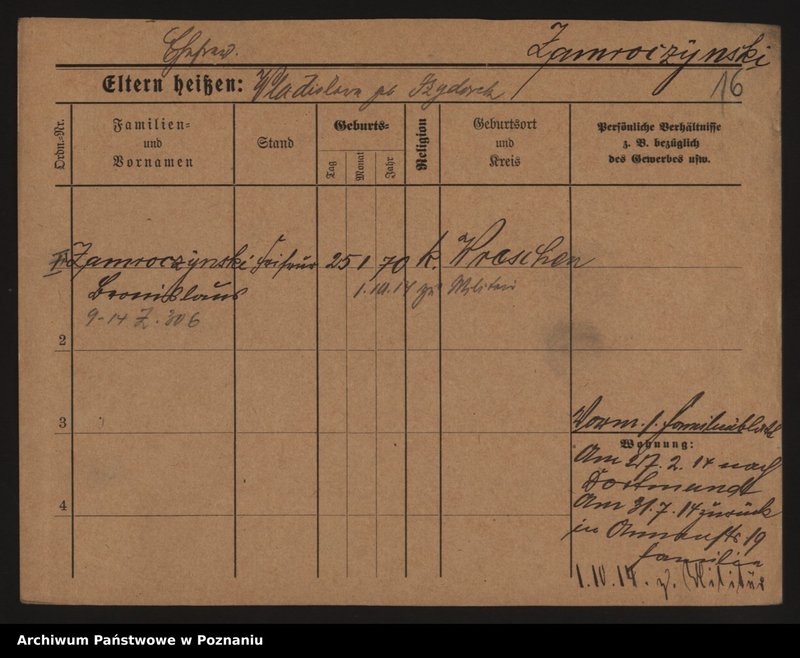 Ehefrau.
Zamroczynski
16
Eltern heißen: Vladislava
Ordn.=Nr.
Familien=
und
Vornamen
Stand
Geburts=
Tag
Monat
Jahr
Religion
Geburtsort
und
Kreis
Persönliche Verhältnisse
z. B. bezüglich
des Gewerbes usw.
Zamroczynski Friseur 25 1 70 k. Wreschen
Bronislaus
1.10.14 zu Militär
9-14 Z. 306
2
3
4
Vorm. s. Familienblatt
Wohnung:
Am 27. 2. 14 nach
Dortmundt
Am 31. 7. 14 zurück
in 19
Familie
1. 10. 14. z. Militär
Archiwum Państwowe w Poznaniu